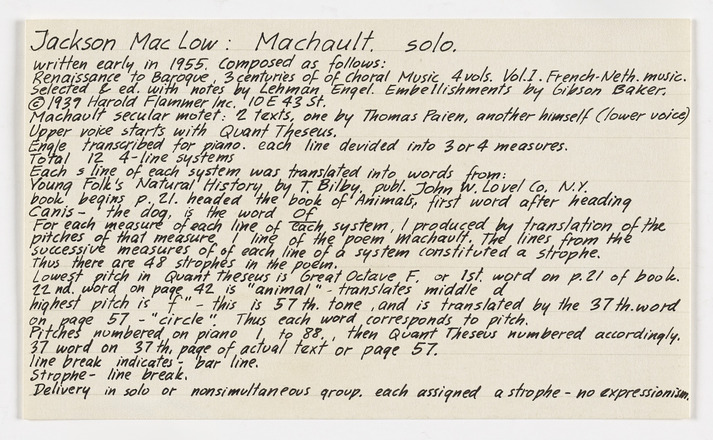 Jackson Mac Low: Machault. solo.
written early in 1955. Composed as follows:
Renaissance to Baroque, 3 centuries of of Choral Music 4 vols. Vol.I. French-Neth. music.
Selected & ed. with notes by Lehman Engel. Embellishments by Gibson Baker.
© 1939 Harold Flammer Inc. 10 E 43 St.
Machault secular motet: 2 texts, one by Thomas Paien, another himself (lower voice)
Upper voice starts with Quant Theseus.
Engle transcribed for piano. each line devided into 3 or 4 measures.
Total 12 4-line systems
Each s line of each system was translated into words from:
Young Folk's Natural History, by T. Bilby, publ. John W. Lovel Co, N.Y.
book begins p. 21. headed the book of Animals, first word after heading
Canis - the dog, is the word Of
For each measure of each line of each system, I produced by translation of the
pitches of that measure 1 line of the poem Machault. The lines from the
successive measures of of each line of a system constituted a strophe.
Thus there are 48 strophes in the poem.
Lowest pitch in Quant Theseus is Great Octave F, or 1st. word on p.21 of book.
22 nd. word on page 42 is "animal" - translates middle d
highest pitch is "f" - this is 57 th. tone, and is translated by the 37 th. word
on page 57 - "circle". Thus each word corresponds to pitch.
Pitches numbered on piano 1 to 88, then Quant Theseus numbered accordingly.
37 word on 37 th. page of actual text or page 57.
line break indicates - bar line.
Strophe - line break.
Delivery in solo or nonsimultaneous group. each assigned a strophe - no expressionism.